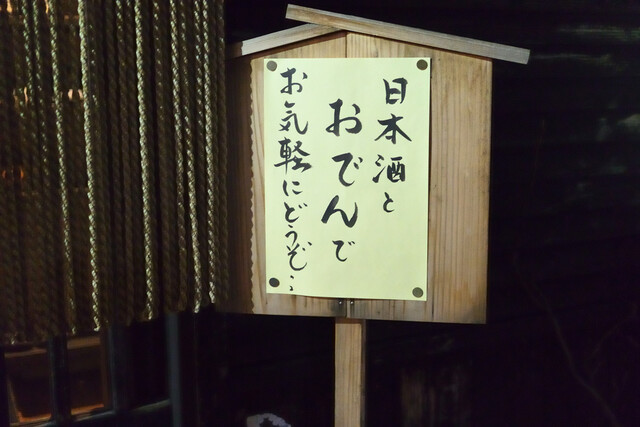 日本酒と
おでんで
お気軽にどうぞ‥